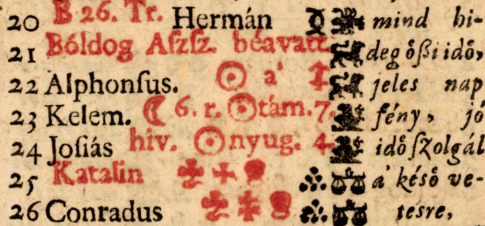 B 26. Tr.
20 Hermán mind hi-
21 Bóldog Aſzſz. béavatt. deg őßi idő,
22 Alphonſus. ☉ a' jeles nap
23 Kelem. ☾ 6. r. ☉ tám. 7. fény, jó
24 Joſiás hiv. ☉ nyug. 4. idő ſzolgál
25 Katalin a' késő ve-
26 Conradus tésre,